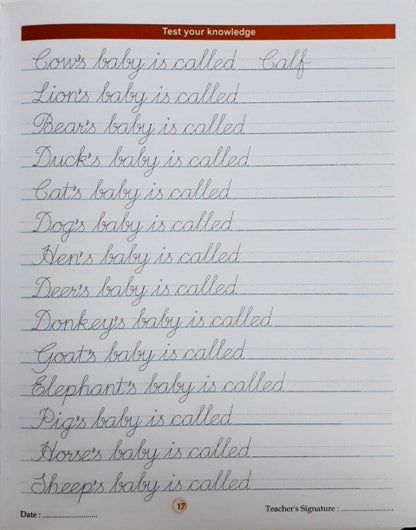 Test your knowledge
Cow's baby is called Calf
Lion's baby is called
Bear's baby is called
Duck's baby is called
Cat's baby is called
Dog's baby is called
Hen's baby is called
Deer's baby is called
Donkey's baby is called
Goat's baby is called
Elephant's baby is called
Pig's baby is called
Horse's baby is called
Sheep's baby is called
17
Date : ........................ Teacher's Signature : .......................